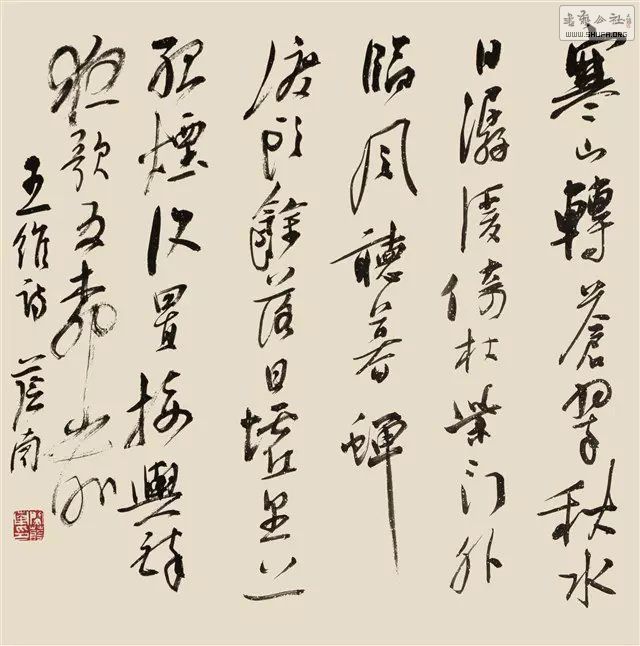 書藝公社
WWW.SHUFA.ORG
寒山轉蒼翠秋水
日潺湲倚杖柴門外
臨風聽暮蟬
渡頭餘落日墟里上
孤煙復值接輿醉
狂歌五柳前
王維詩 蔭南